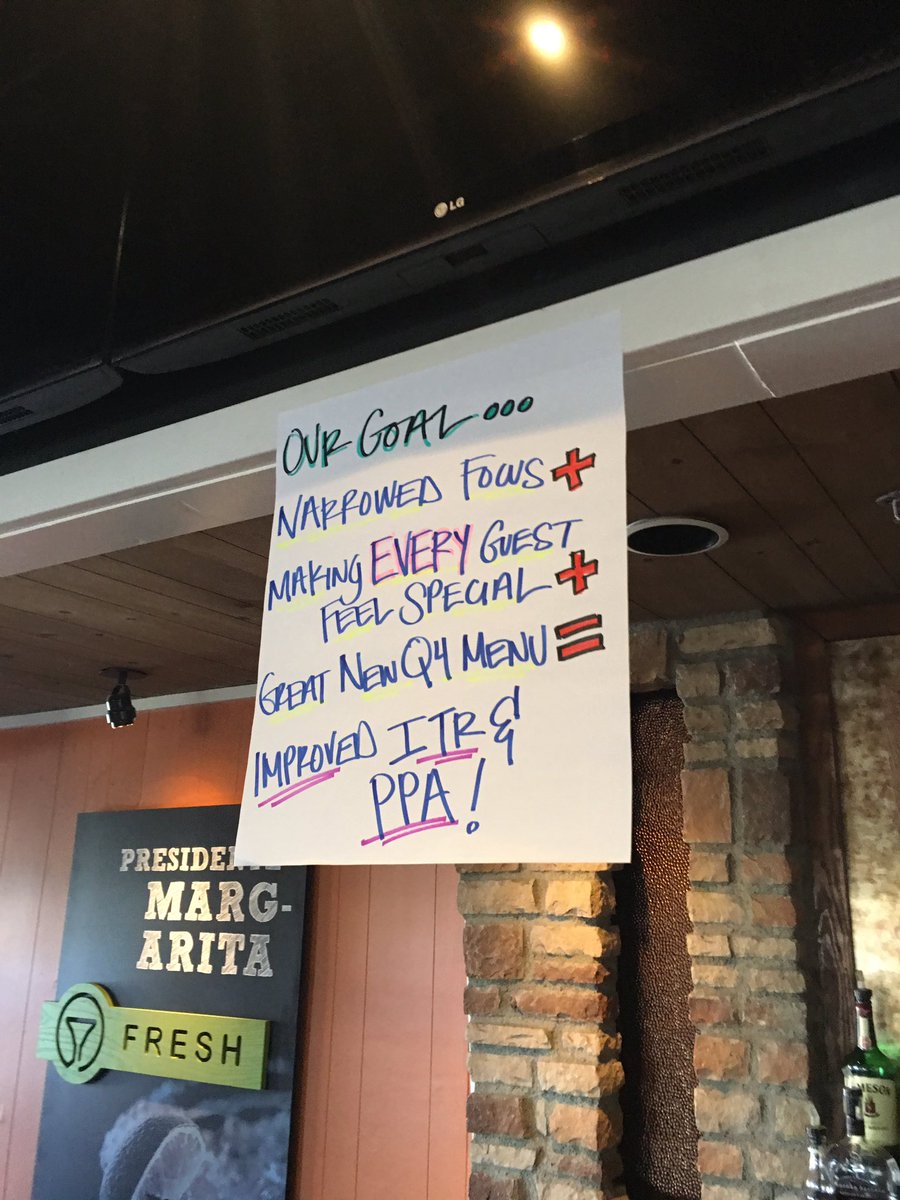 LG
OUR GOAL...
NARROWED FOCUS +
MAKING EVERY GUEST
FEEL SPECIAL +
GREAT NEW Q4 MENU =
IMPROVED ITR &
PPA!
PRESIDENTE
MARG-
ARITA
FRESH